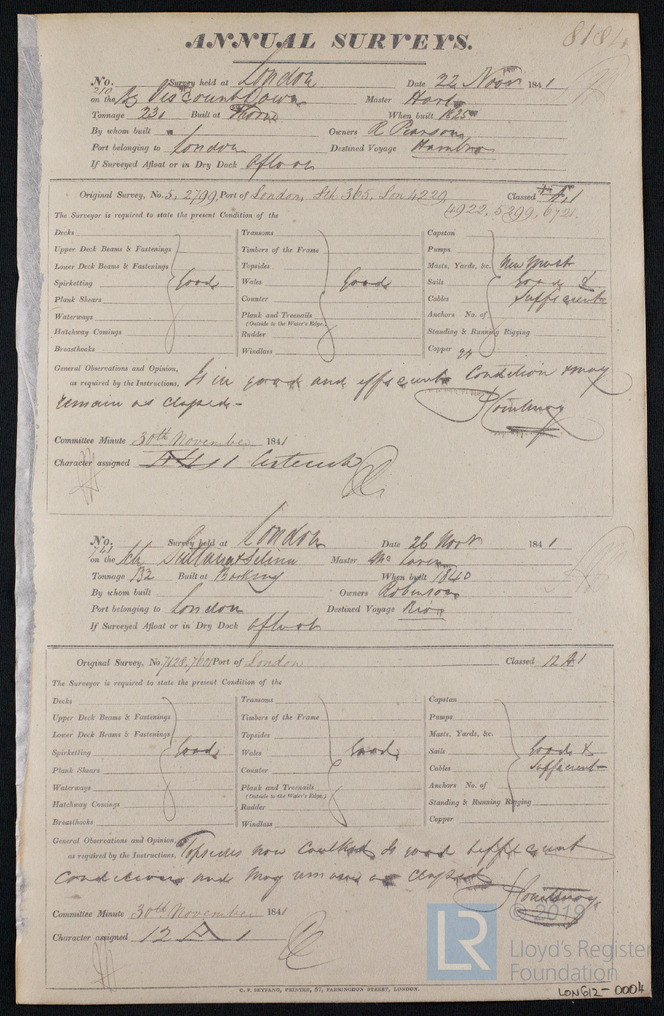 8184
ANNUAL SURVEYS.
No. 210 Survey held at London Date 22 Novr 1841
on the Bg Viscount Down Master Hart
Tonnage 231 Built at Thorne When built 1825
By whom built Owners R Pearson
Port belonging to London Destined Voyage Hambro
If Surveyed Afloat or in Dry Dock Afloat
Original Survey, No. 5, 2799, Port of London, Sth 365, Lon 4229 Classed Æ1
4922, 5299, 6721
The Surveyor is required to state the present Condition of the
Decks Transoms Capstan
Upper Deck Beams & Fastenings Timbers of the Frame Pumps
Lower Deck Beams & Fastenings Topsides Masts, Yards, &c. New Mast
Spirketting Good Wales Good Sails Good &
Plank Shears Counter Cables Sufficient
Waterways Plank and Treenails Anchors No. of
(Outside to the Water's Edge.)
Hatchway Comings Rudder Standing & Running Rigging
Breasthooks Windlass Copper
General Observations and Opinion,
as required by the Instructions. Is in good and efficient Condition & may
remain as classed -
Courtenay
Committee Minute 30th November 1841
Character assigned Æ 1 Asterisk
No. 761 Survey held at London Date 26 Novr 1841
on the Sr Sultana & Selina Master
Tonnage 132 Built at Barking When built 1840
By whom built Owners Robinson
Port belonging to London Destined Voyage Rio
If Surveyed Afloat or in Dry Dock Afloat
Original Survey, No. 7128, 7601 Port of London Classed 12 A1
The Surveyor is required to state the present Condition of the
Decks Transoms Capstan
Upper Deck Beams & Fastenings Timbers of the Frame Pumps
Lower Deck Beams & Fastenings Topsides Masts, Yards, &c.
Spirketting Good Wales Good Sails Good &
Plank Shears Counter Cables Sufficient
Waterways Plank and Treenails Anchors No. of
(Outside to the Water's Edge.)
Hatchway Comings Rudder Standing & Running Rigging
Breasthooks Windlass Copper
General Observations and Opinion,
as required by the Instructions. Topsides now Caulked Is good & efficient
Condition and may remain as classed
Courtenay
Committee Minute 30th November 1841
Character assigned 12 A 1
C. F. SEYFANG, PRINTER, 57, FARRINGDON STREET, LONDON.
LR © 2019
Lloyd's Register
Foundation
LON612-0004